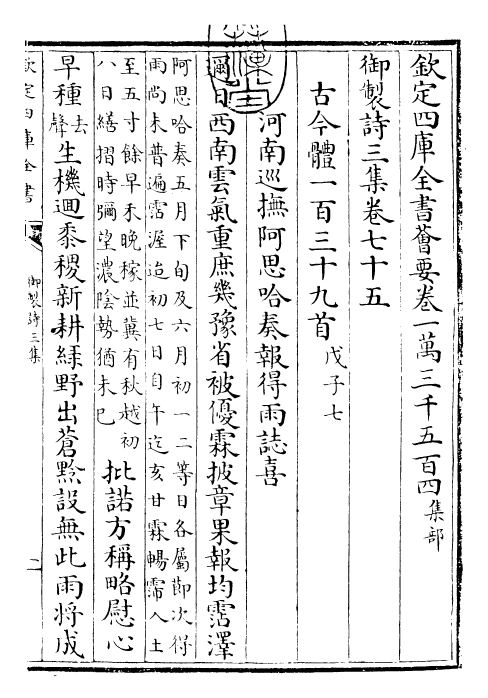 欽定四庫全書薈要卷一萬三千五百四集部
御製詩三集卷七十五
古今體一百三十九首戊子七
河南巡撫阿思哈奏報得雨誌喜
邇日西南雲氣重庶幾豫省被優霖披章果報均霑澤
阿思哈奏五月下旬及六月初一二等日各屬節次得
雨尚未普遍霑渥迨初七日自午迄亥甘霖暢霈入土
至五寸餘早禾晚稼並冀有秋越初
八日繕摺時彌望濃陰勢猶未已
批諾方稱略慰心
早種去聲生機迴黍稷新耕綠野出蒼黔設無此雨將成
欽定四庫全書
御製詩三集